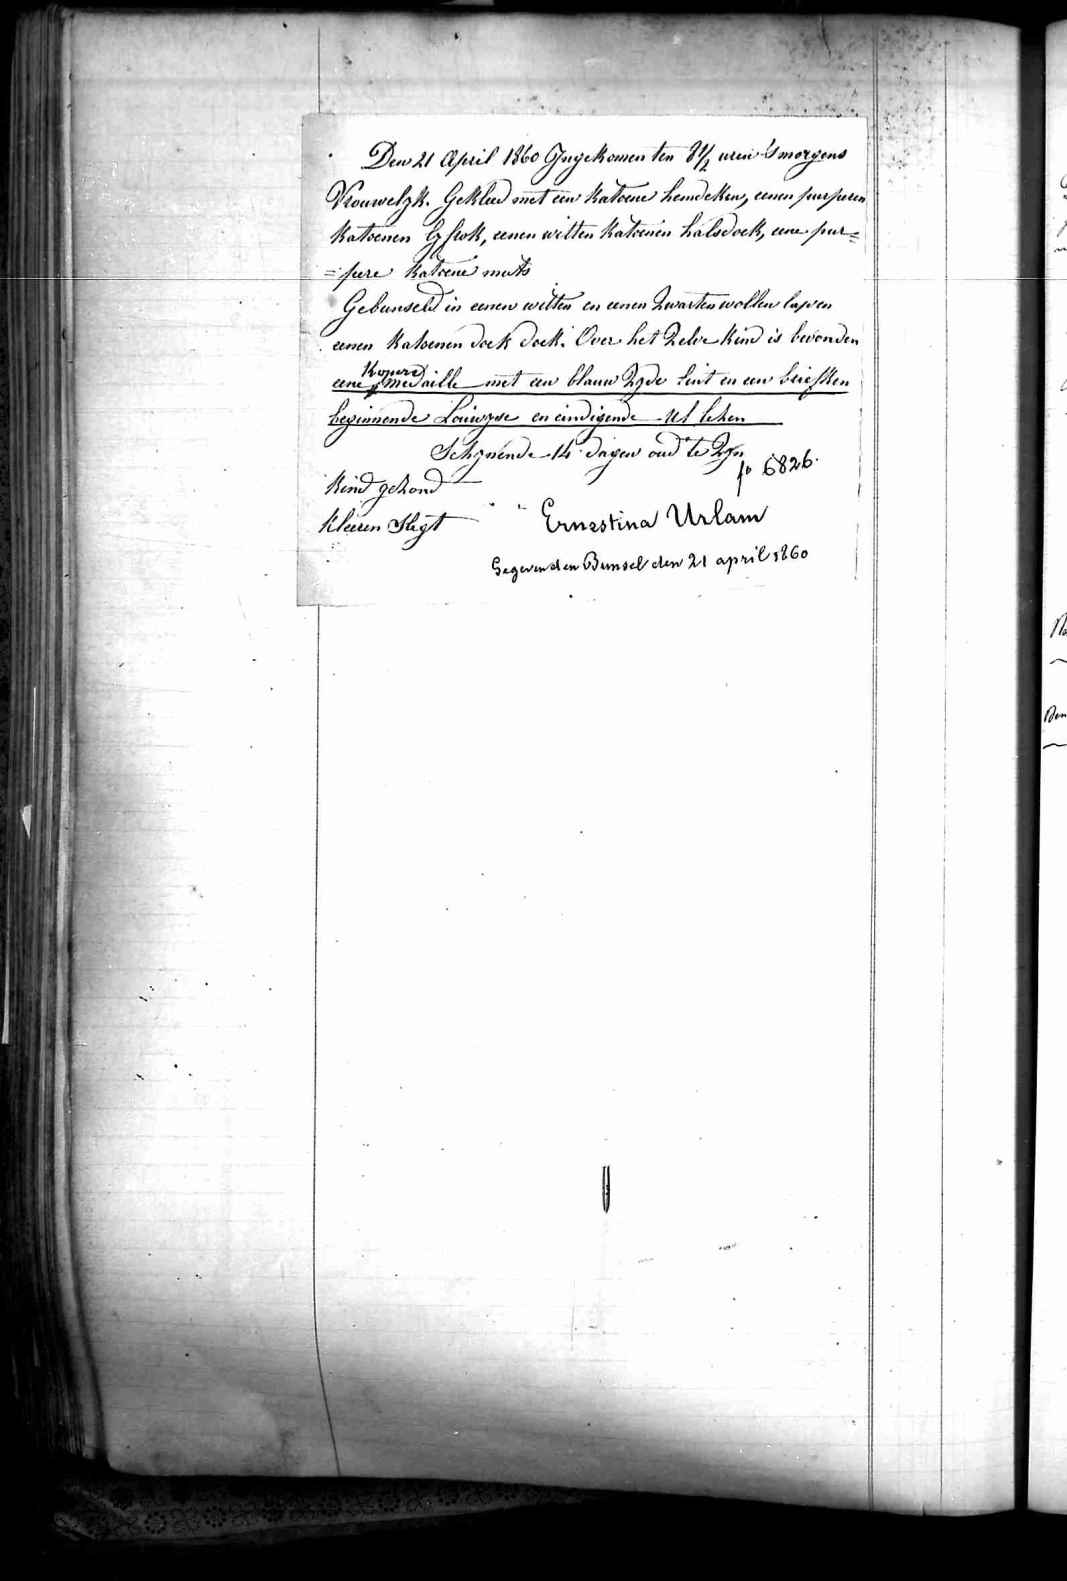 Den 21 April 1860 Ingekomen ten 8 1/2 uren 'smorgens
Vrouwelyk. Gekleed met een katoene hemdeken, eenen purperen
katoenen lyfrok, eenen witten katoenen halsdoek, eene pur=
=pere katoene muts
Gebunseld in eenen witten en eenen zwarten wollen lapen
eenen katoenen doek doek. Over het zelve kind is bevonden
kopere
eene medaille met een blauw zyde lint en een briefken
beginnende Louiyse en eindigende
Schynende 14 dagen oud te zyn
fo 6826.
kind gezond
kleeren slegt
Ernestina Urlam
Gegeven den Bunsel den 21 april 1860